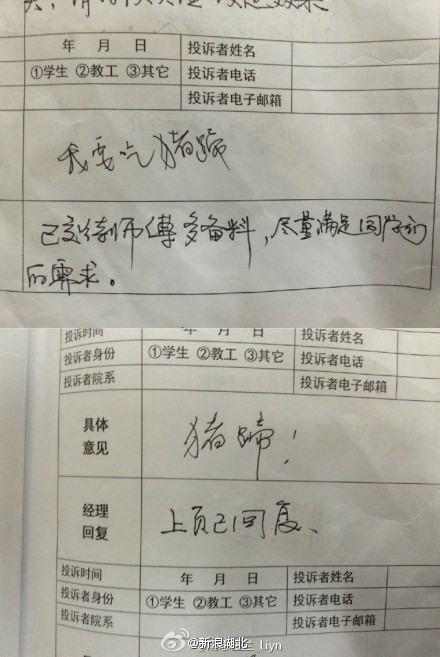 年 月 日 投诉者姓名
①学生 ②教工 ③其它 投诉者电话
投诉者电子邮箱
我要吃猪蹄
已交待师傅多备料，尽量满足同学们
的需求。
投诉时间 年 月 日 投诉者姓名
投诉者身份 ①学生 ②教工 ③其它 投诉者电话
投诉者院系 投诉者电子邮箱
具体
意见
猪蹄！
经理
回复
上页已回复、
投诉时间 年 月 日 投诉者姓名
投诉者身份 ①学生 ②教工 ③其它 投诉者电话
投诉者院系 投诉者电子邮箱
@新浪湖北_liyn